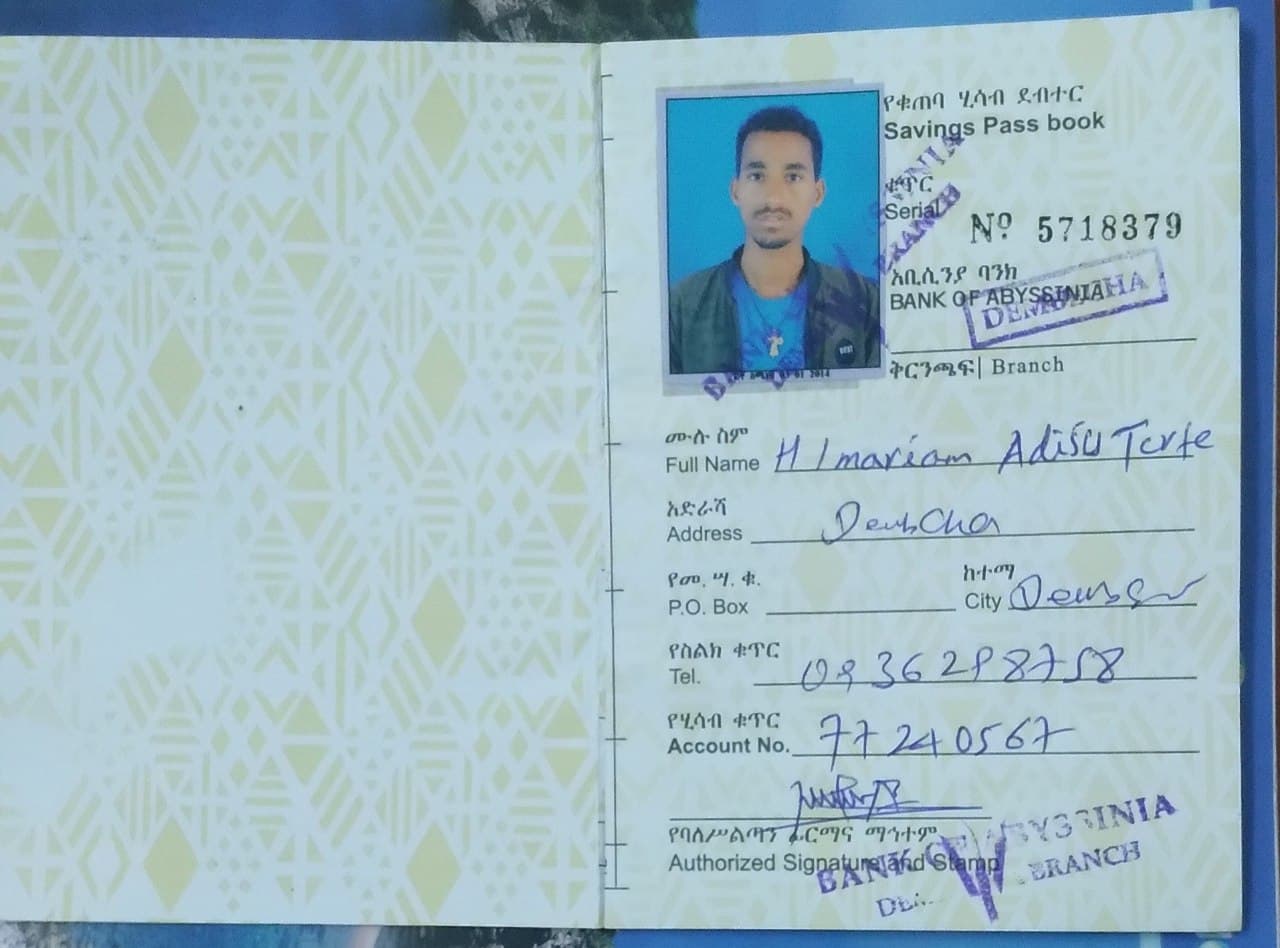 የቁጠባ ሂሳብ ደብተር
Savings Pass book
ቁጥር
Serial
Nº 5718379
አቢሲንያ ባንክ
BANK OF ABYSSINIA
ቅርንጫፍ| Branch
ሙሉ ስም
Full Name H/mariam Adisu
አድራሻ
Address
የመ. ሣ. ቁ.
P.O. Box
ከተማ
City
የስልክ ቁጥር
Tel. 0936298758
የሂሳብ ቁጥር
Account No. 77240567
የባለሥልጣን ፊርማና ማኅተም
Authorized Signature and Stamp
BANK OF ABYSSINIA
BRANCH